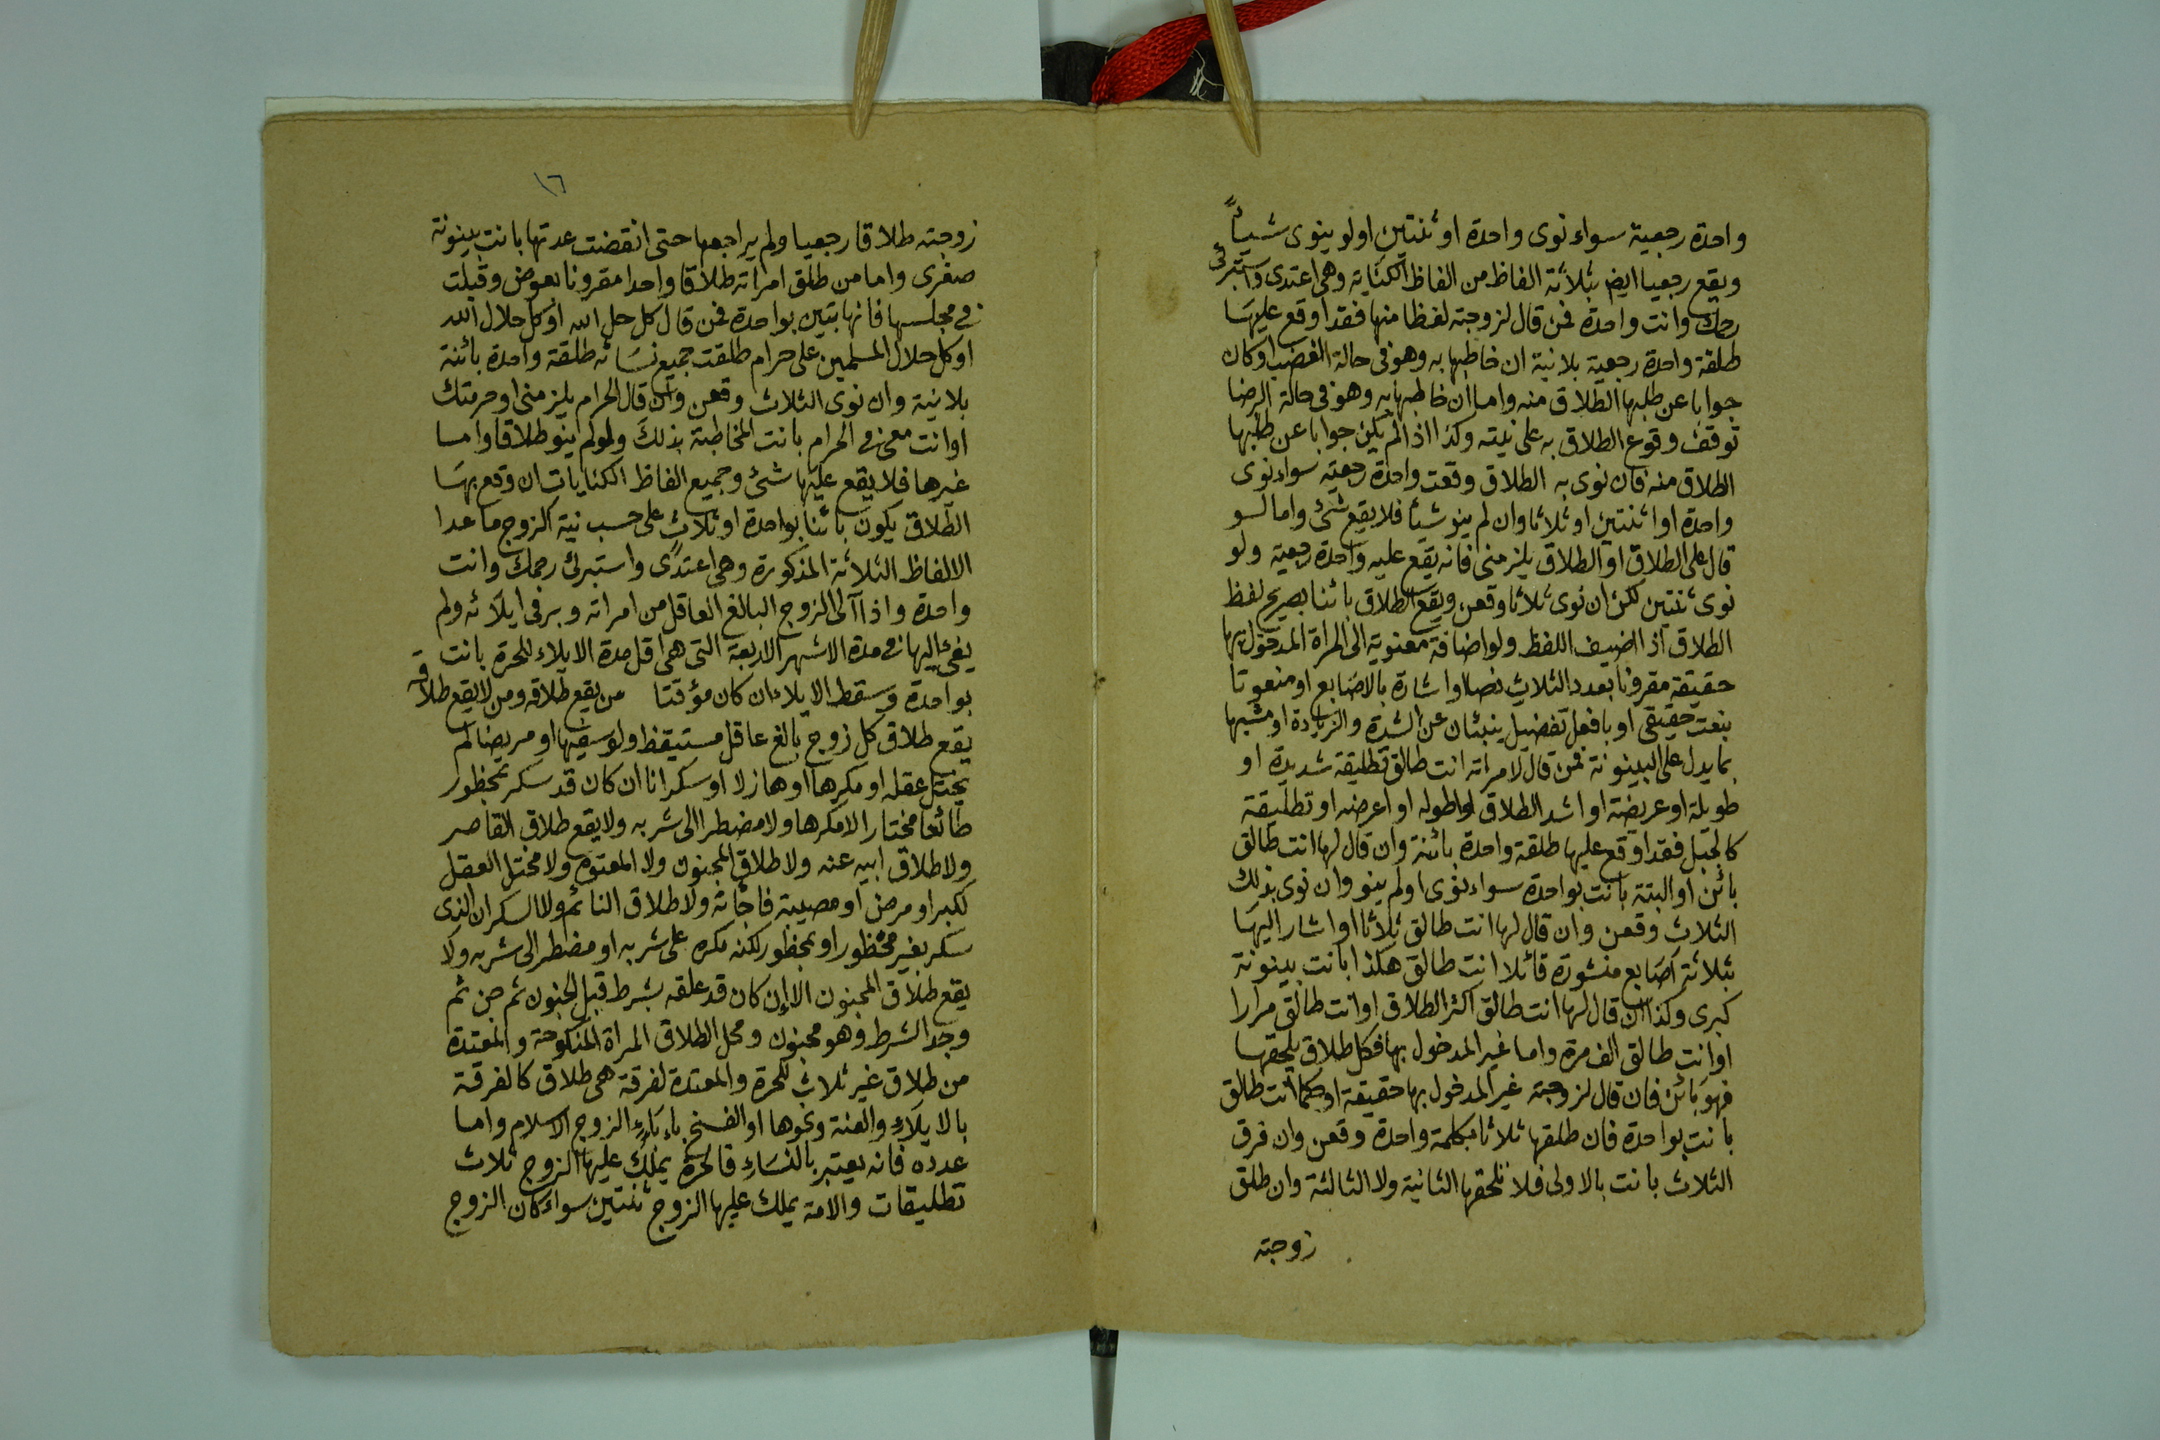 واحدة رجعية سواء نوى واحدة او ثنتين او لو ينوى شيأً
ويقع رجعيا ايض بثلاثة الفاظ من الفاظ الكناية وهى اعتدى واستبرئى
رحمك وانت واحدة فمن قال لزوجته لفظا منها فقد اوقع عليها
طلقة واحدة رجعية بلا نية ان خاطبها به وهو فى حالة الغضب او كان
جوابا عن طلبها الطلاق منه واما ان خاطبها به وهو فى حالة الرضا
توقف وقوع الطلاق به على نيته وكذا اذا لم يكن جوابا عن طلبها
الطلاق منه فان نوى به الطلاق وقعت واحدة رجعية سواء نوى
واحدة او اثنتين او ثلاثا وان لم ينو شيأ فلا يقع شئ واما لو
قال على الطلاق او الطلاق يلزمنى فانه يقع عليه واحدة رجعية ولو
نوى ثنتين لكن ان نوى ثلاثا وقعن ويقع الطلاق بائنا بصريح لفظ
الطلاق اذا اضيف اللفظ ولو اضافة معنوية الى المراة المدخول بها
حقيقة مقرونا بعدد الثلاث نصا او اشارة بالاصابع او منعوتا
بنعت حقيقى او بافعل تفضيل ينبئان عن الشدة والزيادة او مشبها
بما يدل على البينونة فمن قال لامراته انت طالق تطليقة شديدة او
طويلة او عريضة او اشد الطلاق او اطوله او اعرضه او تطليقة
كالجبل فقد اوقع عليها طلقة واحدة بائنة وان قال لها انت طالق
بائن او البتة بانت بواحدة سواء نوى او لم ينو وان نوى بذلك
الثلاث وقعن وان قال لها انت طالق ثلاثا او اشار اليها
بثلاثة اصابع منشورة قائلا انت طالق هكذا بانت بينونة
كبرى وكذا ان قال لها انت طالق اكثر الطلاق او انت طالق مرارا
او انت طالق الف مرة واما غير المدخول بها فكل طلاق يلحقها
فهو بائن فان قال لزوجته غير المدخول بها حقيقة او حكما انت طالق
بانت بواحدة فان طلقها ثلاثا بكلمة واحدة وقعن وان فرق
الثلاث بانت بالاولى فلا تلحقها الثانية ولا الثالثة وان طلق
زوجته
١٦
زوجته طلاقا رجعيا ولم يراجعها حتى انقضت عدتها بانت بينونة
صغرى واما من طلق امراته طلاقا واحدا مقرونا بعوض وقبلت
فى مجلسها فانها تبين بواحدة فمن قال كل حل الله او كل حلال الله
او كل حلال المسلمين على حرام طلقت جميع نسائه طلقة واحدة بائنة
بلا نية وان نوى الثلاث وقعن وان قال الحرام يلزمنى او حرمتك
او انت معى فى الحرام بانت المخاطبة بذلك ولو لم ينو طلاقا واما
غيرها فلا يقع عليها شئ وجميع الفاظ الكنايات ان وقع بها
الطلاق يكون بائنا بواحدة او ثلاث على حسب نية الزوج ما عدا
الالفاظ الثلاثة المذكورة وهى اعتدى واستبرئ رحمك وانت
واحدة واذا آلى الزوج البالغ العاقل من امراته وبر فى ايلائه ولم
يفئ اليها فى مدة الاشهر الاربعة التى هى اقل مدة الايلاء للحرة بانت
بواحدة وسقط الايلاء ان كان مؤقتا من يقع طلاقه ومن لا يقع طلاقه
يقع طلاق كل زوج بالغ عاقل مستيقظ ولو سفيها او مريضا لم
يختل عقله او مكرها او هازلا او سكرانا ان كان قد سكر بمحظور
طائعا مختارا لا مكرها ولا مضطرا الى شربه ولا يقع طلاق القاصر
ولا طلاق ابيه عنه ولا طلاق المجنون ولا المعتوه ولا مختل العقل
لكبر او مرض او مصيبة فاجأته ولا طلاق النائم ولا السكران الذى
سكر بغير محظور او بمحظور لكنه مكره على شربه او مضطر الى شربه ولا
يقع طلاق المجنون الا ان كان قد علقه بشرط قبل الجنون ثم جن ثم
وجد الشرط وهو مجنون ومحل الطلاق المراة المنكوحة والمعتدة
من طلاق غير ثلاث للحرة والمعتدة لفرقة هى طلاق كالفرقة
بالايلاء والعنة ونحوها او الفسخ باباء الزوج الاسلام واما
عدده فانه يعتبر بالنساء فالحرة يملك عليها الزوج ثلاث
تطليقات والامة يملك عليها الزوج ثنتين سواء كان الزوج